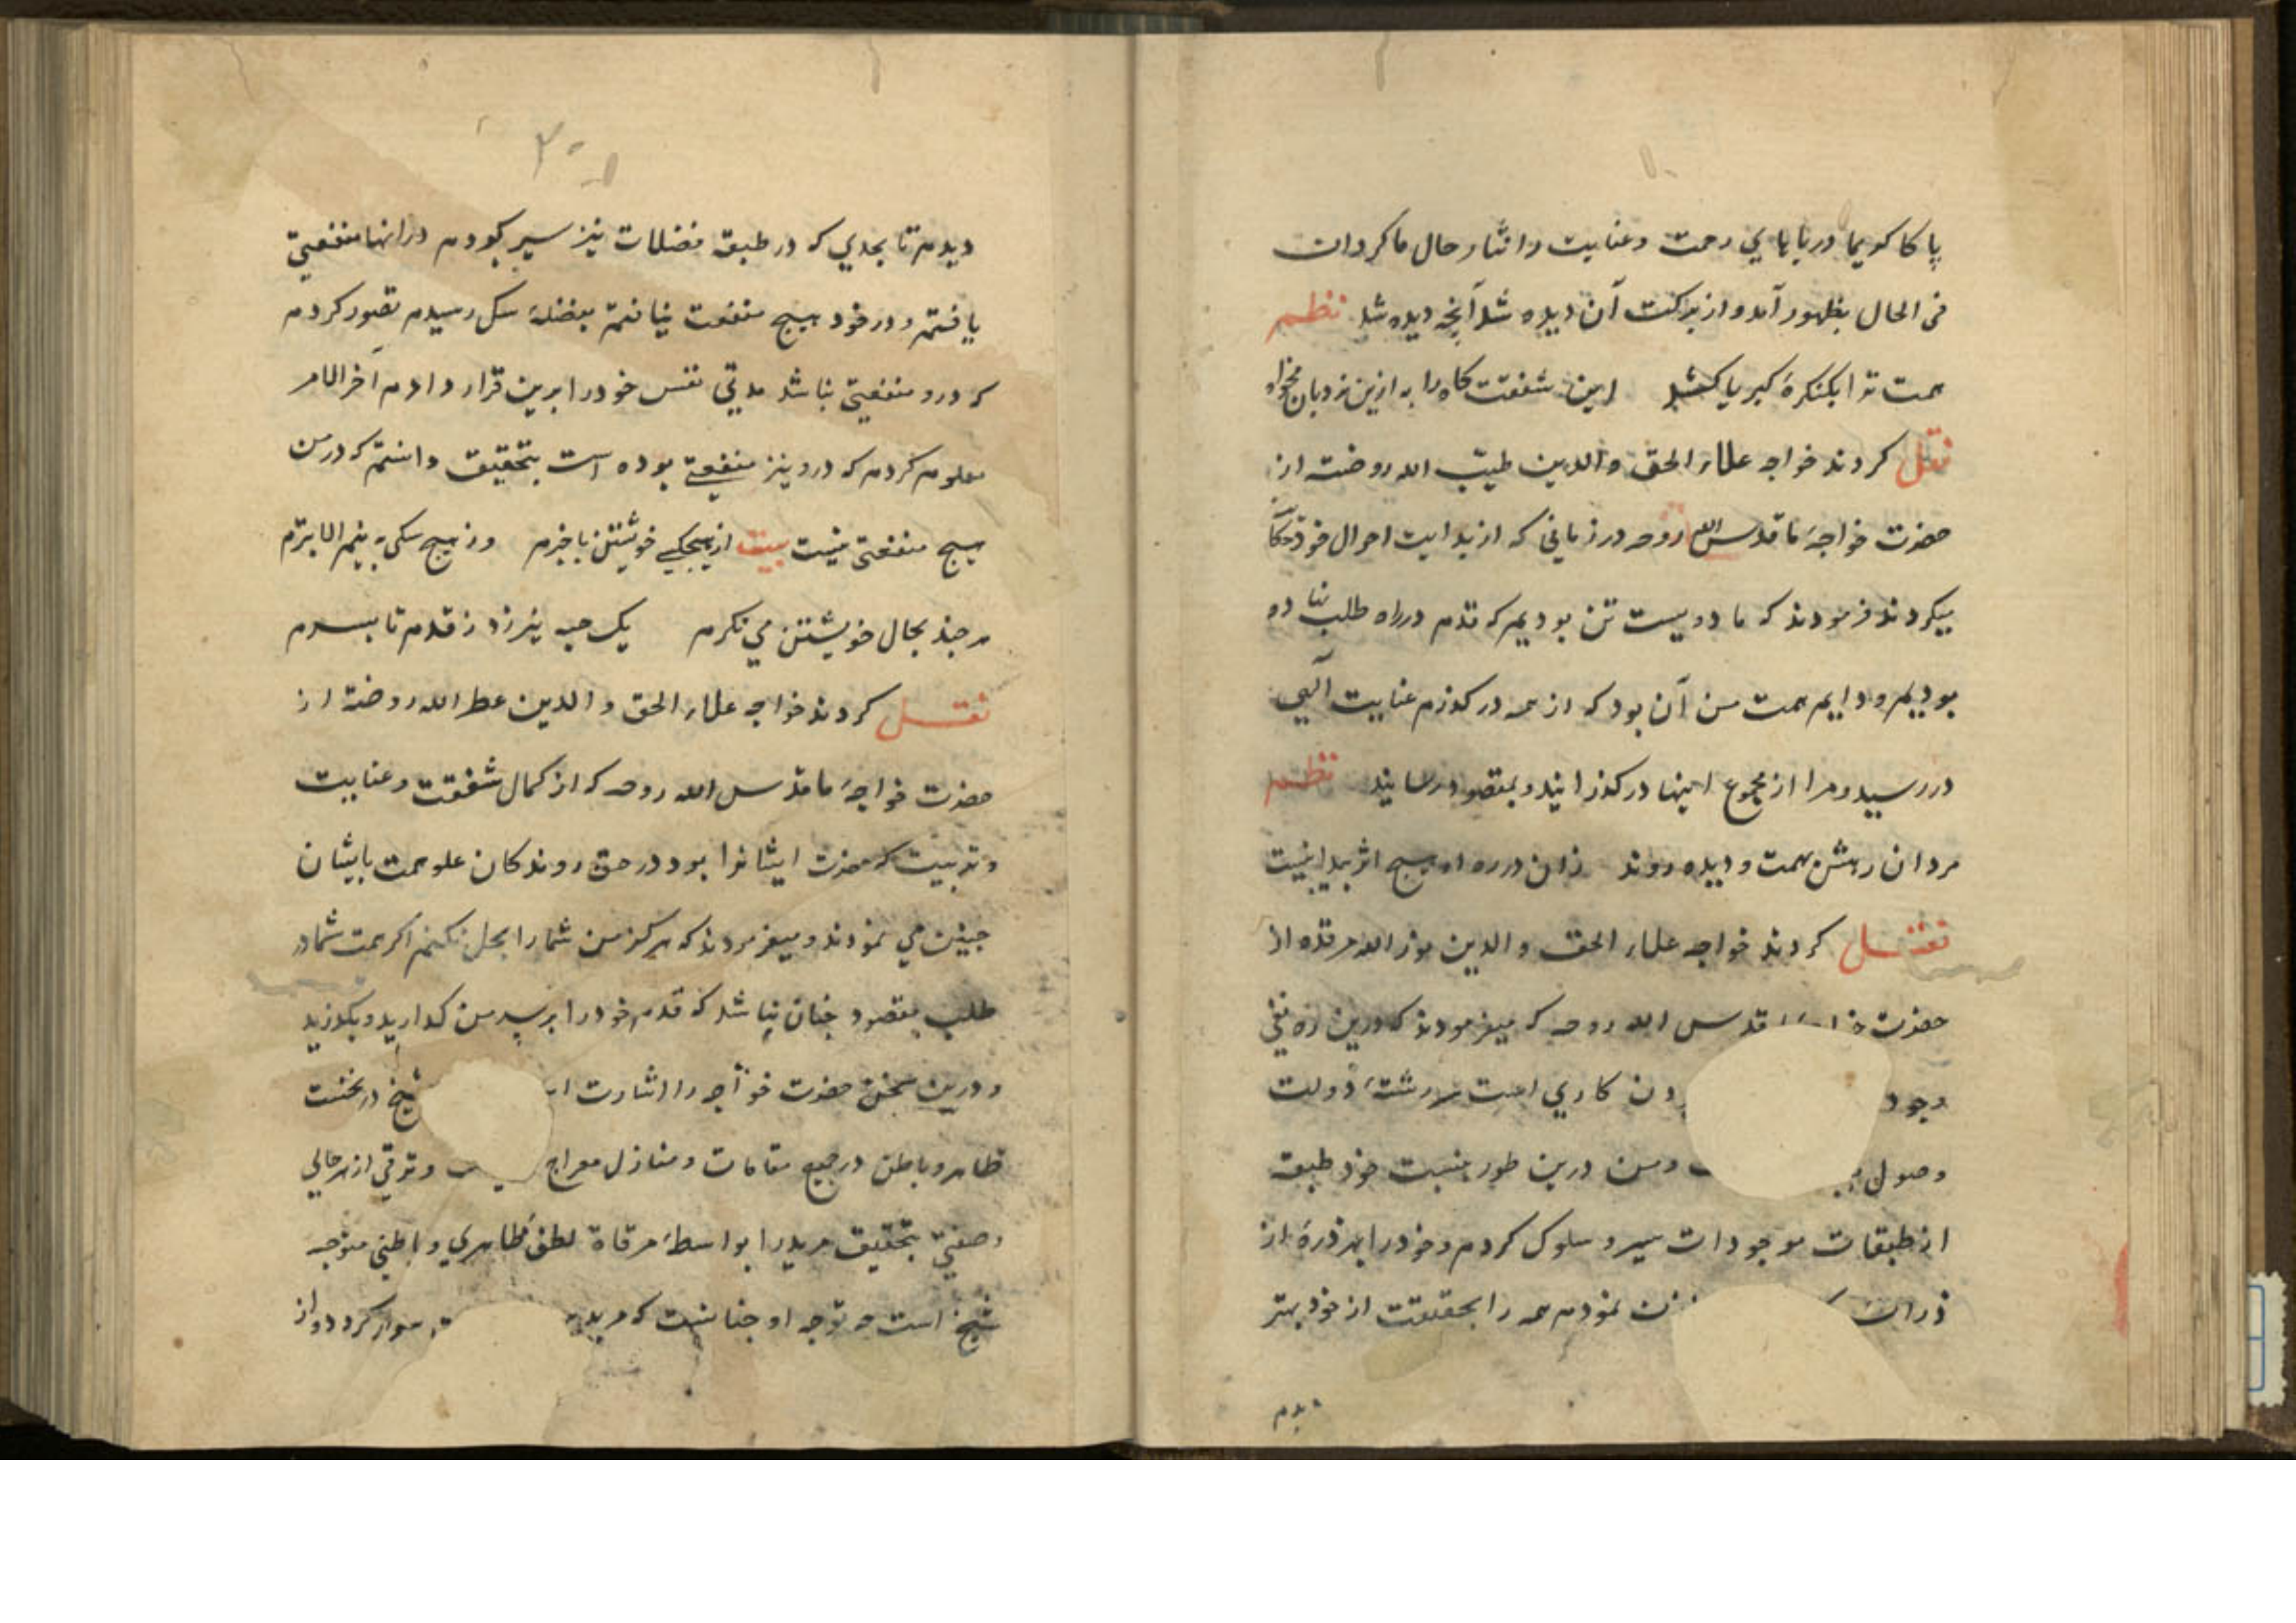 پاکا کویما دریابای رحمت وعنایت و انثار حال ما کردان
فی الحال بظهور آمد و از برکت آن دیده شد آنچه دیده شد نظم
همت ترا بکنکرهٔ کبریا کشد این شفقت کاه را به ازین نردبان مخواه
نقل کردند خواجه علاء الحق والدین طیب الله روضته از
حضرت خواجهٔ ما قدس الله روحه در زمانی که از بدایت احوال خود حکا
میکردند فرمودند که ما دویست تن بودیم که قدم در راه طلب نها ده
بودیم و دایم همت من آن بود که از همه درکذرم عنایت آلهی
در رسید و مرا از مجموع اینها درکذرانید و بمقصود رسانید نظم
مردان رهش بهمت و دیده روند زان در ره او هیچ اثر پیدا نیست
نقل کردند خواجه علاء الحق والدین نور الله مرقده از
حضرت قدس الله روحه که میفرمودند که درین راه نفی
وجود ون کاری است سر رشتهٔ دولت
وصول و من درین طور بنسبت خود طبقه
از طبقات موجودات سیر و سلوک کردم و خود را بهر ذرهٔ از
ذرات نمودم همه را بحقیقت از خود بهتر
دیدم
۲۰
دیدم تا بحدی که در طبقه فضلات نیز سیر کردم در انها منفعتی
یافتم و در خود هیچ منفعت نیافتم بفضلهٔ سک رسیدم تصور کردم
که درو منفعتی نباشد مدتی نفس خود را برین قرار دادم آخر الامر
معلوم کردم که درو نیز منفعتی بوده است بتحقیق دانستم که در من
هیچ منفعتی نیست بیت از هیچکسی خویشتن با خبرم وز هیچ سکی به نیم الا بترم
هر چند بحال خویشتن می نکرم یک حبه نیرزد ز قدم تا بسرم
نقل کردند خواجه علاء الحق والدین عطر الله روضته از
حضرت خواجهٔ ما قدس الله روحه که از کمال شفقت و عنایت
و تربیت که حضرت ایشانرا بود در حق روندکان علو همت بایشان
چنین می نمودند و میفرمودند که هرکز من شمارا بحل نکنم اکر همت شما در
طلب مقصود چنان نباشد که قدم خود را بر سر من کذارید و بکذرید
و درین سخن حضرت خواجه را اشارت شیخ در بخست
ظاهر و باطن در جمیع مقامات و منازل معراج و ترقی از هر حالی
وصفتی بتحقیق مرید را بواسطهٔ مرقاة لطف ظاهری و باطنی متوجه
شیخ است چه توجه او جنانست که مرید سوار کردد و از